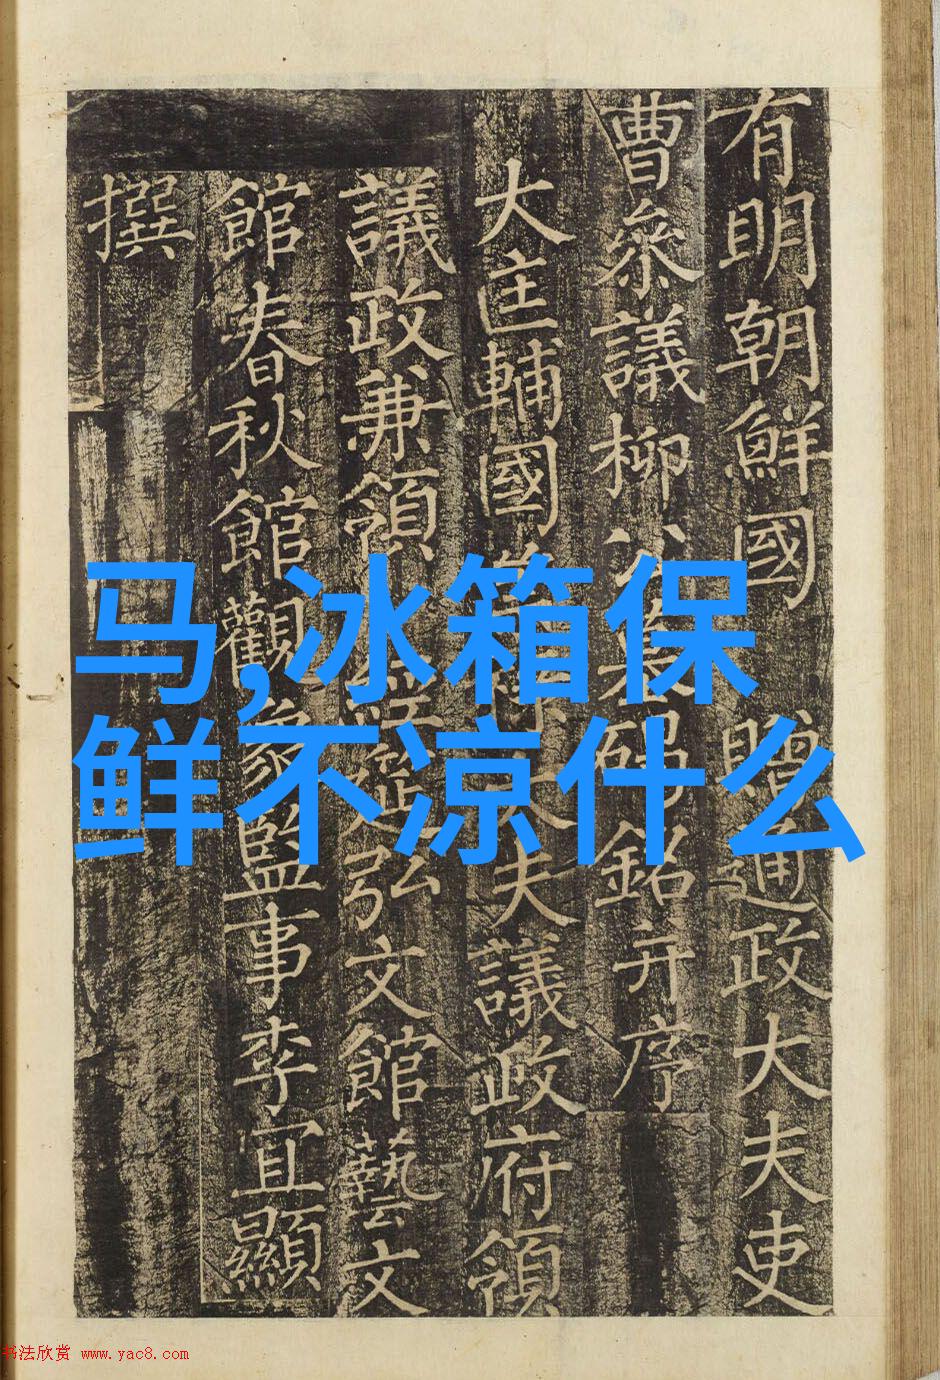 有明朝鮮國 贈通政大夫吏
曹叅議柳公墓碣銘并序
大匡輔國大夫議政府領
議政兼領經筵弘文館藝文
館春秋館觀象監事李宜顯
撰
马,冰箱保
鲜不凉什么
书法欣赏 www.yac8.com